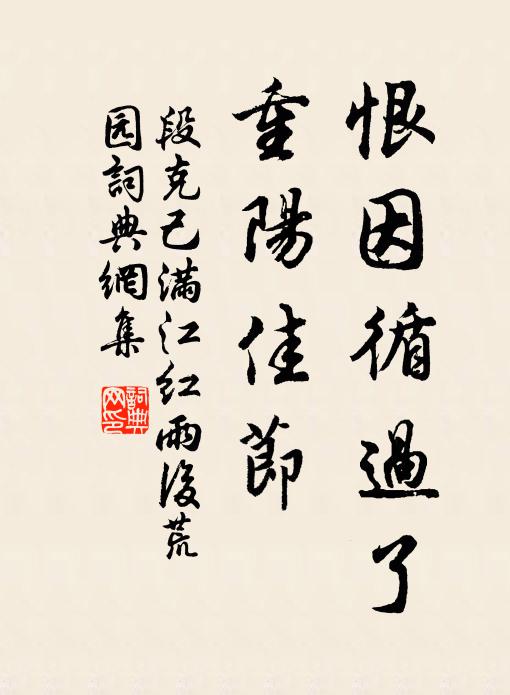 恨因循過了
重陽佳節
段克己滿江紅雨後荒
园詞典網集
詞典
网印